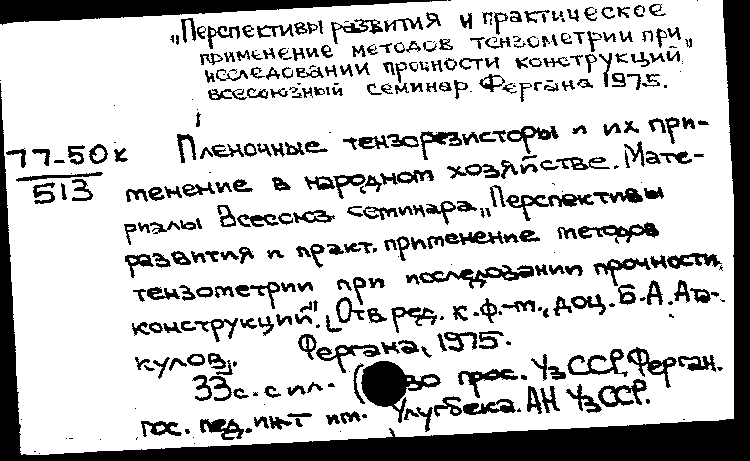 „Перспективы развития и практическое
применение методов тензометрии при
исследовании прочности конструкций"
всесоюзный семинар. Фергана 1975.
77-50к
513
Пленочные тензорезисторы и их при-
менение в народном хозяйстве. Мате-
риалы Всесоюз. семинара „Перспективы
развития и практ. применение методов
тензометрии при исследовании прочности
конструкций". [Отв. ред. к.ф.-м., доц. Б.А. Ата-
кулов]. Фергана, 1975.
33 с. с ил. ( прос. УзССР. Ферган.
гос. пед. ин-т им. Улугбека. АН УзССР.